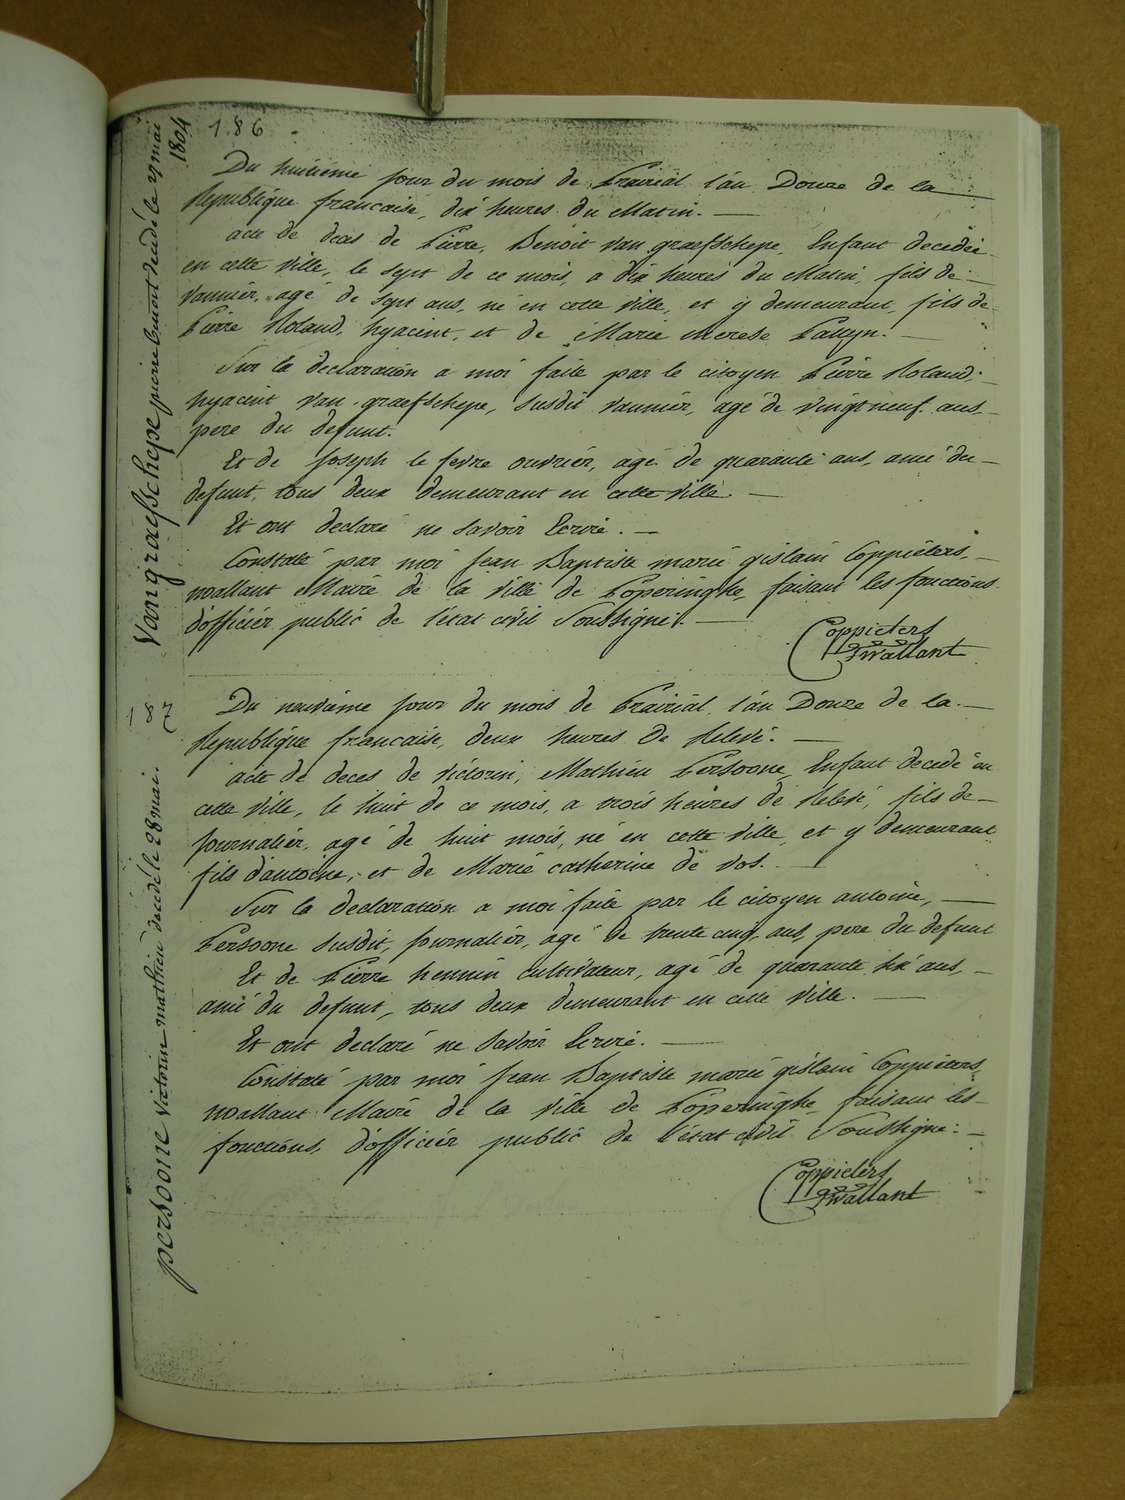 186
Vangraefschepe pierre benoit decedé le 27 mai 1804
Du huitième jour du mois de Prairial l'an Douze de la
Republique francaise, dix heures du Matin. —
acte de deces de Pierre, Benoit Van graefschepe, Enfant decedée
en cette ville, le sept de ce mois, a dix heures du Matin, fils de
vannier, agé de sept ans, né en cette ville, et y demeurant, fils de
Pierre Roland, hyacint, et de Marie therese
Sur la declaration a moi faite par le citoyen Pierre Roland,
hyacint Van graefschepe, susdit vannier, agé de vingt neuf ans
pere du defunt.
Et de Joseph le fevre ouvrier, agé de quarante ans, amé du —
defunt, tous deux demeurant en cette ville —
Et ont declaré ne savoir Ecrire. —
Constaté par moi Jean Baptiste marie gislain Coppieters,
wallant Maire de la ville de Poperinghe, faisant les fonctions
d'officier public de l'état civil Soussigné. —
Coppieters
Twallant
187
persoone victorin mathieu decedé le 28 mai.
Du neuvième jour du mois de Prairial l'an Douze de la. —
Republique francaise, deux heures de Relevé. —
acte de deces de victorin, Mathieu Persoone, Enfant decedé en
cette ville, le huit de ce mois, a trois heures de Relevé, fils de —
journalier, agé de huit mois, né en cette ville, et y demeurant
fils d'antoine, et de Marie catherine de vos. —
Sur la declaration a moi faite par le citoyen antoine, —
Persoone susdit, journalier, agé de trente cinq ans, pere du defunt
Et de Pierre hennin cultivateur, agé de quarante six ans, —
amé du defunt, tous deux demeurant en cette ville. —
Et ont declaré ne savoir Ecrire. —
Constaté par moi Jean Baptiste marie gislain Coppieters,
wallant Maire de la ville de Poperinghe faisant les —
fonctions, d'officier public de l'état civil Soussigné: —
Coppieters
Twallant